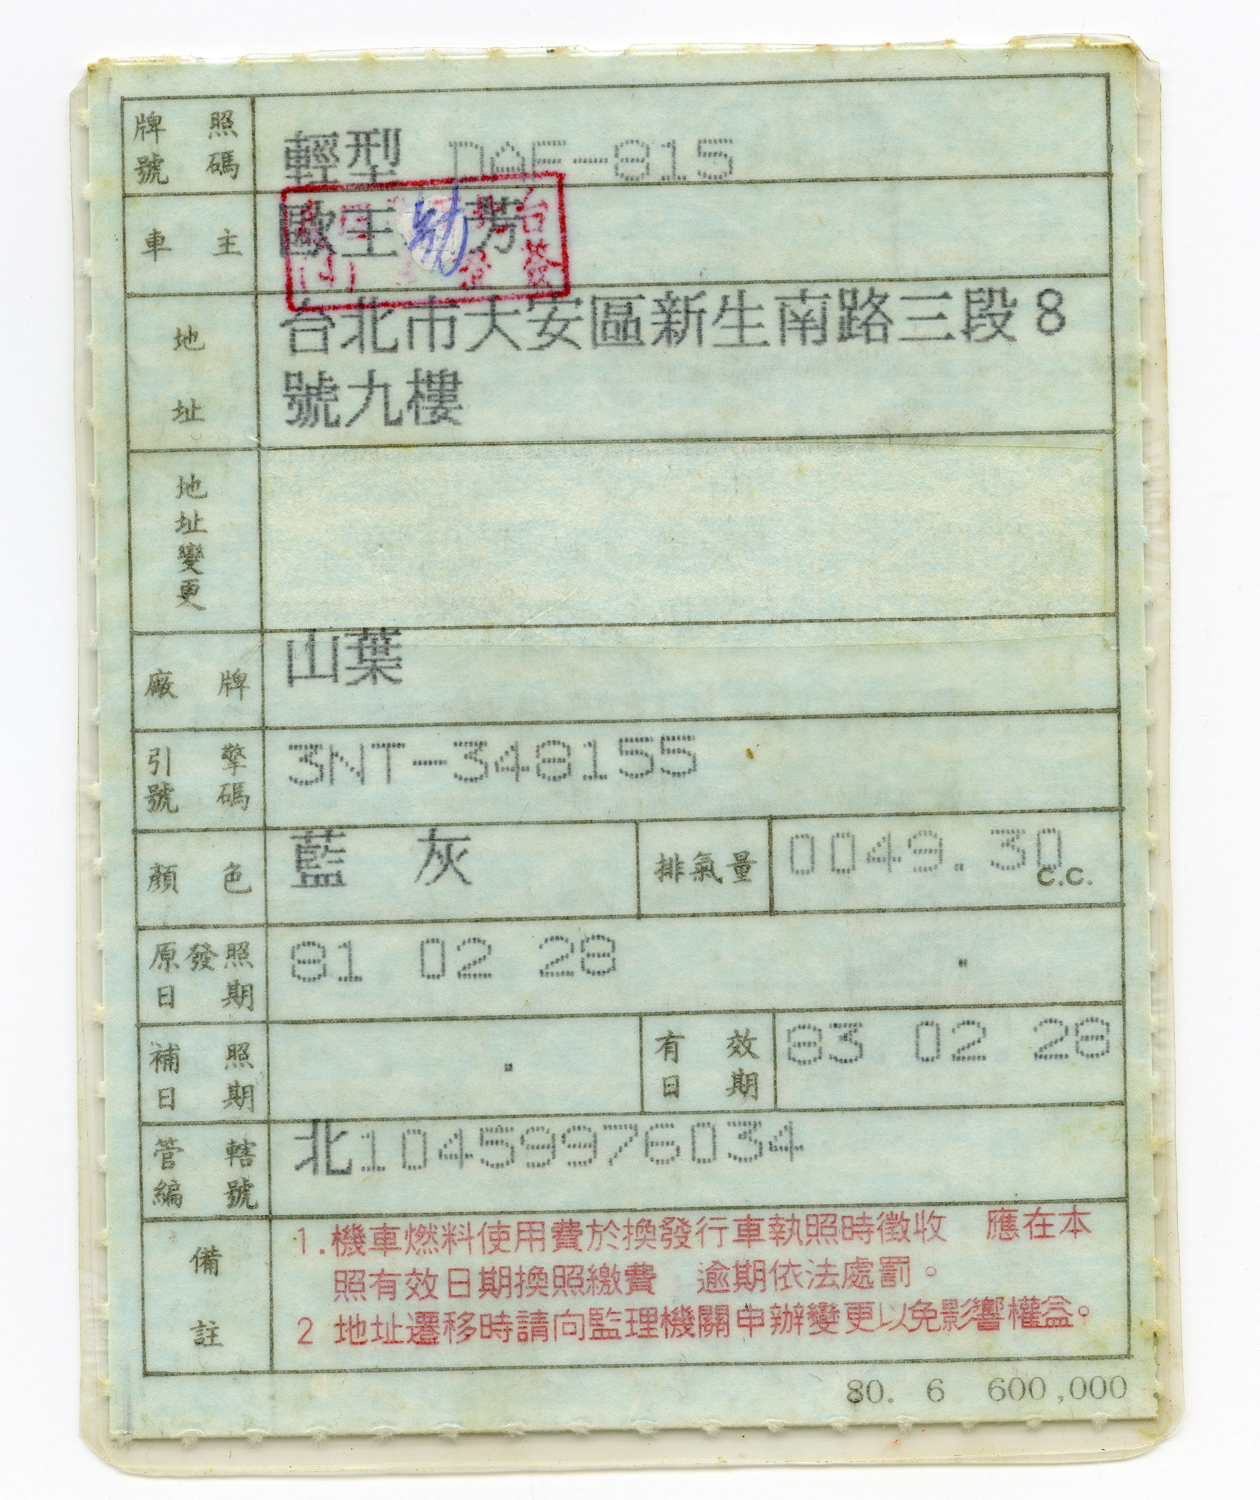 牌照號碼 輕型 DAF-815
車主 歐王 芳
地址 台北市大安區新生南路三段8
號九樓
地址變更
廠牌 山葉
引擎號碼 3NT-348155
顏色 藍 灰 排氣量 0049.30 C.C.
原發照日期 81 02 28
補照日期 有效日期 83 02 28
管轄編號 北10459976034
備註 1.機車燃料使用費於換發行車執照時徵收 應在本
照有效日期換照繳費 逾期依法處罰。
2 地址遷移時請向監理機關申辦變更以免影響權益。
80. 6 600,000